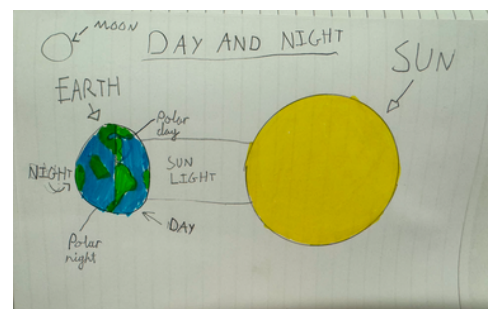 MOON
DAY AND NIGHT
SUN
EARTH
Polar
day
SUN
LIGHT
NIGHT
DAY
Polar
night